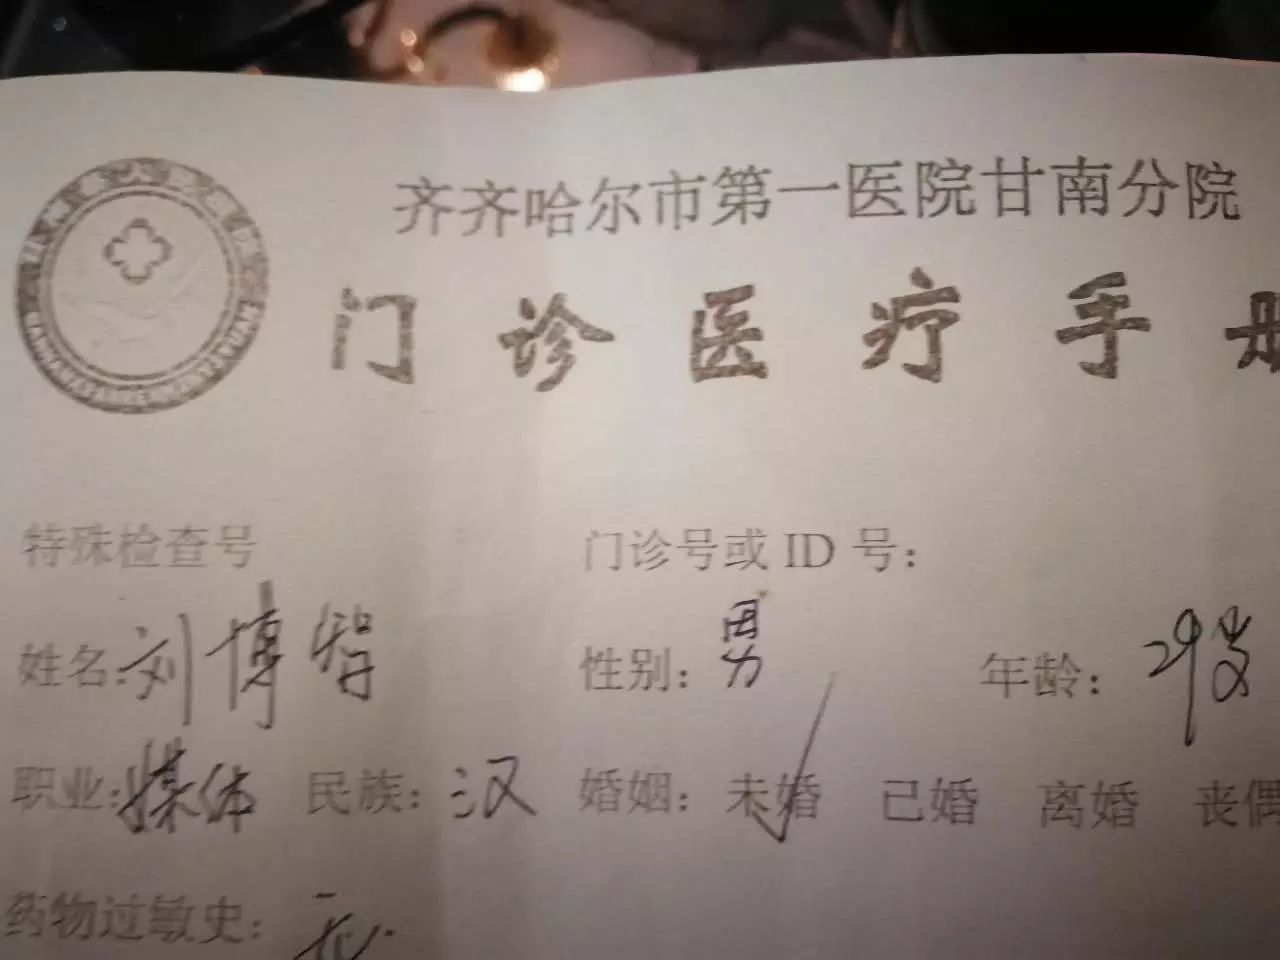 齐齐哈尔市第一医院甘南分院
门诊医疗手册
特殊检查号 门诊号或 ID 号：
姓名：刘博智 性别：男 年龄：29岁
职业：媒体 民族：汉 婚姻：未婚 已婚 离婚 丧偶
药物过敏史：无